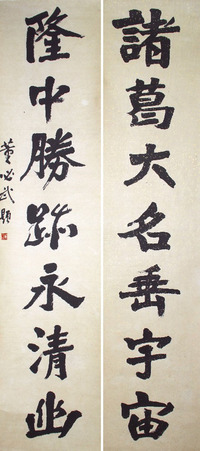 諸葛大名垂宇宙
隆中勝跡永清幽
董必武題